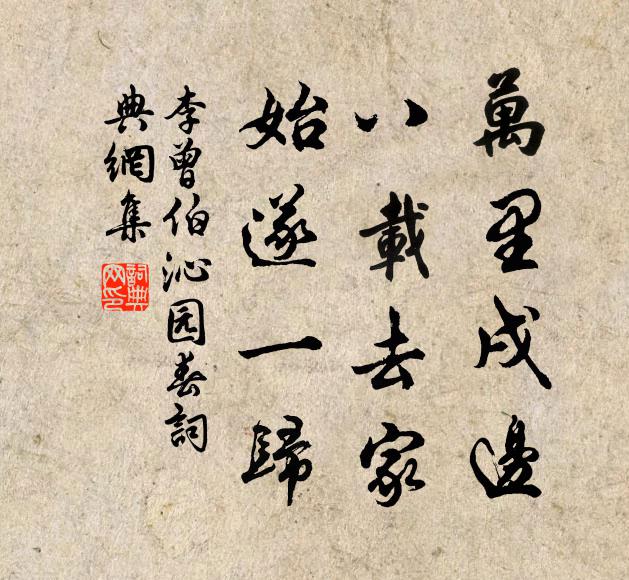 萬里戍邊
八載去家
始遂一歸
李曾伯沁园春詞
典網集
詞典
网印